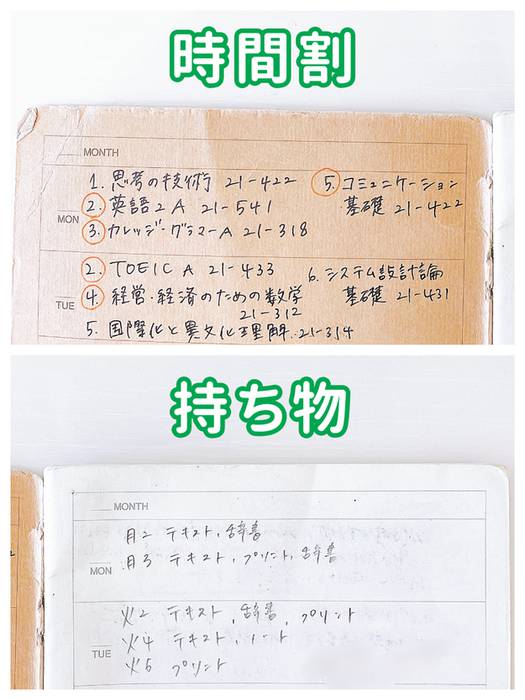 時間割
MONTH
MON
1. 思考の技術 21-422
2. 英語2A 21-541
3. カレッジ・グラマーA 21-318
5. コミュニケーション
基礎 21-422
TUE
2. TOEIC A 21-433
4. 経営・経済のための数学
21-312
5. 国際化と異文化理解 21-314
6. システム設計論
基礎 21-431
持ち物
MONTH
MON
月2 テキスト, 辞書
月3 テキスト, プリント, 辞書
TUE
火2 テキスト, 辞書, プリント
火4 テキスト, ノート
プリント